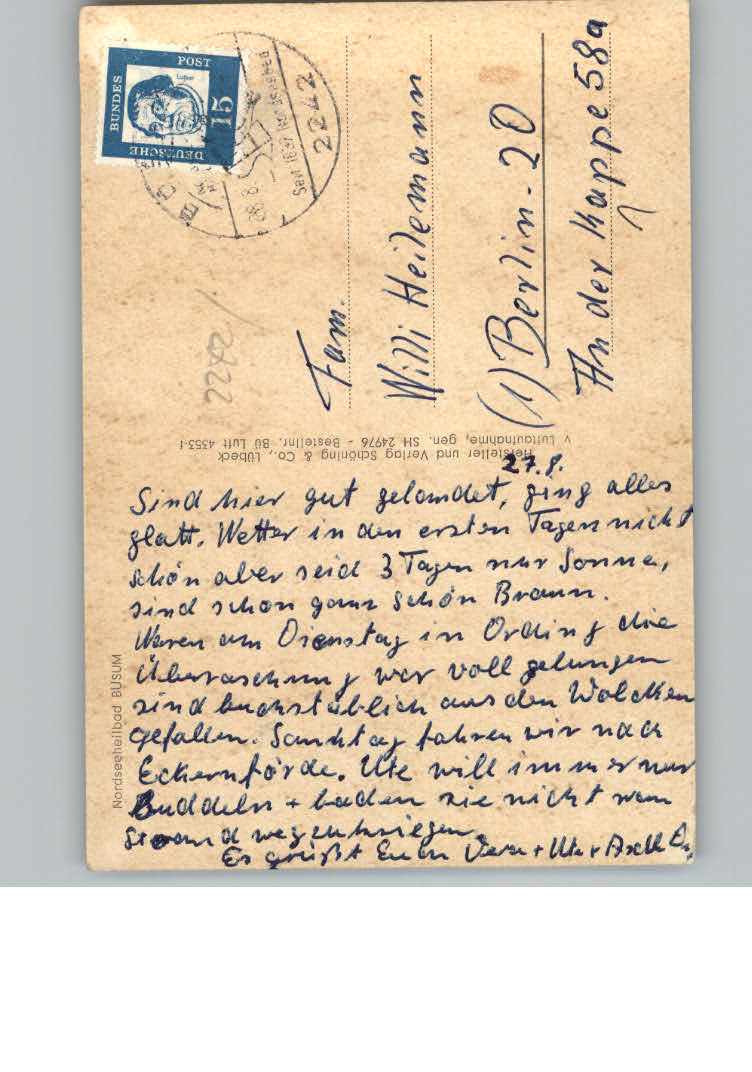 DEUTSCHE
BUNDES
POST
Luther
15
28.8.
Seit 1837 Nordseebad
2242
2242
Fam.
Willi Heilemann
(1) Berlin - 20
An der Kappe 58a
Hersteller und Verlag Schöning & Co., Lübeck
v Luftaufnahme, gen. SH 24976 - Bestellnr. Bü Luft 4353-f
Nordseeheilbad BÜSUM
27.8.
Sind hier gut gelandet, ging alles
glatt. Wetter in den ersten Tagen nicht
schön aber seid 3 Tagen nur Sonne,
sind schon ganz schön Braun.
Waren am Dienstag in Ording die
Überraschung war voll gelungen
sind buchstäblich aus den Wolcken
gefallen. Sonntag fahren wir nach
Eckernförde. Ute will immer nur
Buddeln + baden sie nicht vom
Strand wegzukriegen.
Es grüßt Euch Vera + Ute +